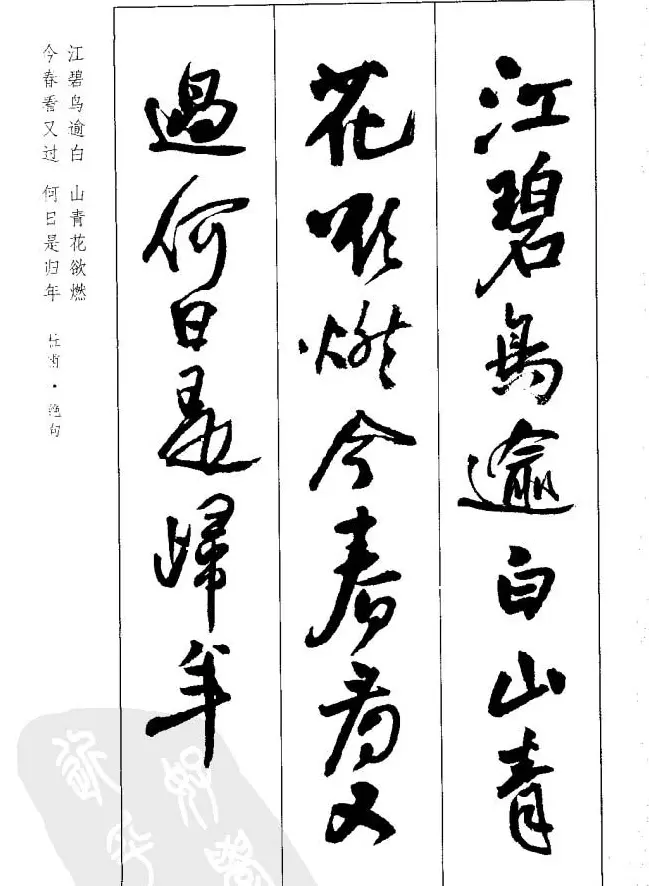 江碧鳥逾白山青
花欲燃今春看又
過何日是歸年
江碧鸟逾白 山青花欲燃
今春看又过 何日是归年
杜甫·绝句